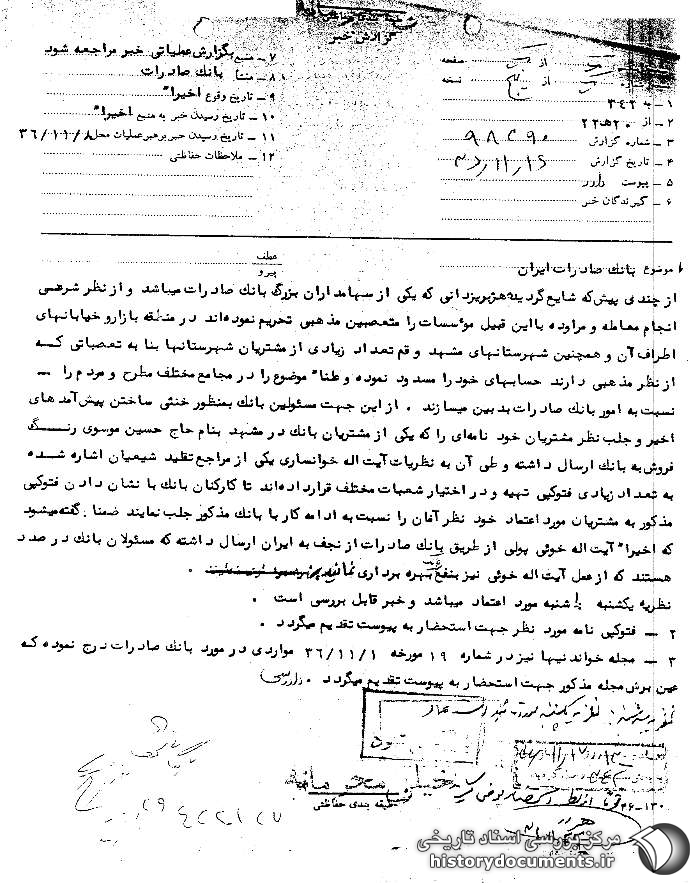 گزارش خبر
۷ – منبع بگزارش عملیاتی خبر مراجعه شود
۸ – منشأ بانك صادرات
۹ – تاریخ وقوع اخیرا"
۱۰ – تاریخ رسیدن خبر به منبع اخیرا"
۱۱ – تاریخ رسیدن خبر برهبر عملیات محل ۳۶/۱۱/۸
۱۲ – ملاحظات حفاظتی
از صفحه
از نسخه
۱ – به ۳۴۲
۲ – از ۲۰ه۲۲
۳ – شماره گزارش
۴ – تاریخ گزارش
۵ – پیوست دارد
۶ – گیرندگان خبر
موضوع بانك صادرات ایران
عطف
پیرو
از چندی پیش که شایع گردیده هژبریزدانی که یکی از سهامداران بزرگ بانك صادرات میباشد و از نظر شرعی
انجام معامله و مراوده با این قبیل مؤسسات را متعصبین مذهبی تحریم نموده‌اند در منطقه بازار و خیابانهای
اطراف آن و همچنین شهرستانهای مشهد و قم تعداد زیادی از مشتریان شهرستانها بنا به تعصباتی که
از نظر مذهبی دارند حسابهای خود را مسدود نموده و علنا" موضوع را در مجامع مختلف مطرح و مردم را –
نسبت به امور بانك صادرات بدبین میسازند . از این جهت مسئولین بانك بمنظور خنثی ساختن پیش‌آمدهای
اخیر و جلب نظر مشتریان خود نامه‌ای را که یکی از مشتریان بانك در مشهد بنام حاج حسین موسوی رنگ
فروش به بانك ارسال داشته و طی آن به نظریات آیت اله خوانساری یکی از مراجع تقلید شیعیان اشاره شده
به تعداد زیادی فتوکپی تهیه و در اختیار شعبات مختلف قرار داده‌اند تا کارکنان بانك با نشان دادن فتوکپی
مذکور به مشتریان مورد اعتماد خود نظر آنان را نسبت به ادامه کار با بانك مذکور جلب نمایند ضمنا . گفته میشود
که اخیرا" آیت اله خوئی پولی از طریق بانك صادرات از نجف به ایران ارسال داشته که مسئولان بانك در صدد
هستند که از عمل آیت اله خوئی نیز بنفع بهره برداری نمایند
نظریه یکشنبه . شنبه مورد اعتماد میباشد و خبر قابل بررسی است .
۲ – فتوکپی نامه مورد نظر جهت استحضار به پیوست تقدیم میگردد .
۳ – مجله خواندنیها نیز در شماره ۱۹ مورخه ۳۶/۱۱/۱ مواردی در مورد بانك صادرات درج نموده که
عین برش مجله مذکور جهت استحضار به پیوست تقدیم میگردد .
خیلی محرمانه
طبقه بندی حفاظتی
مرکز بررسی اسناد تاریخی
historydocuments.ir